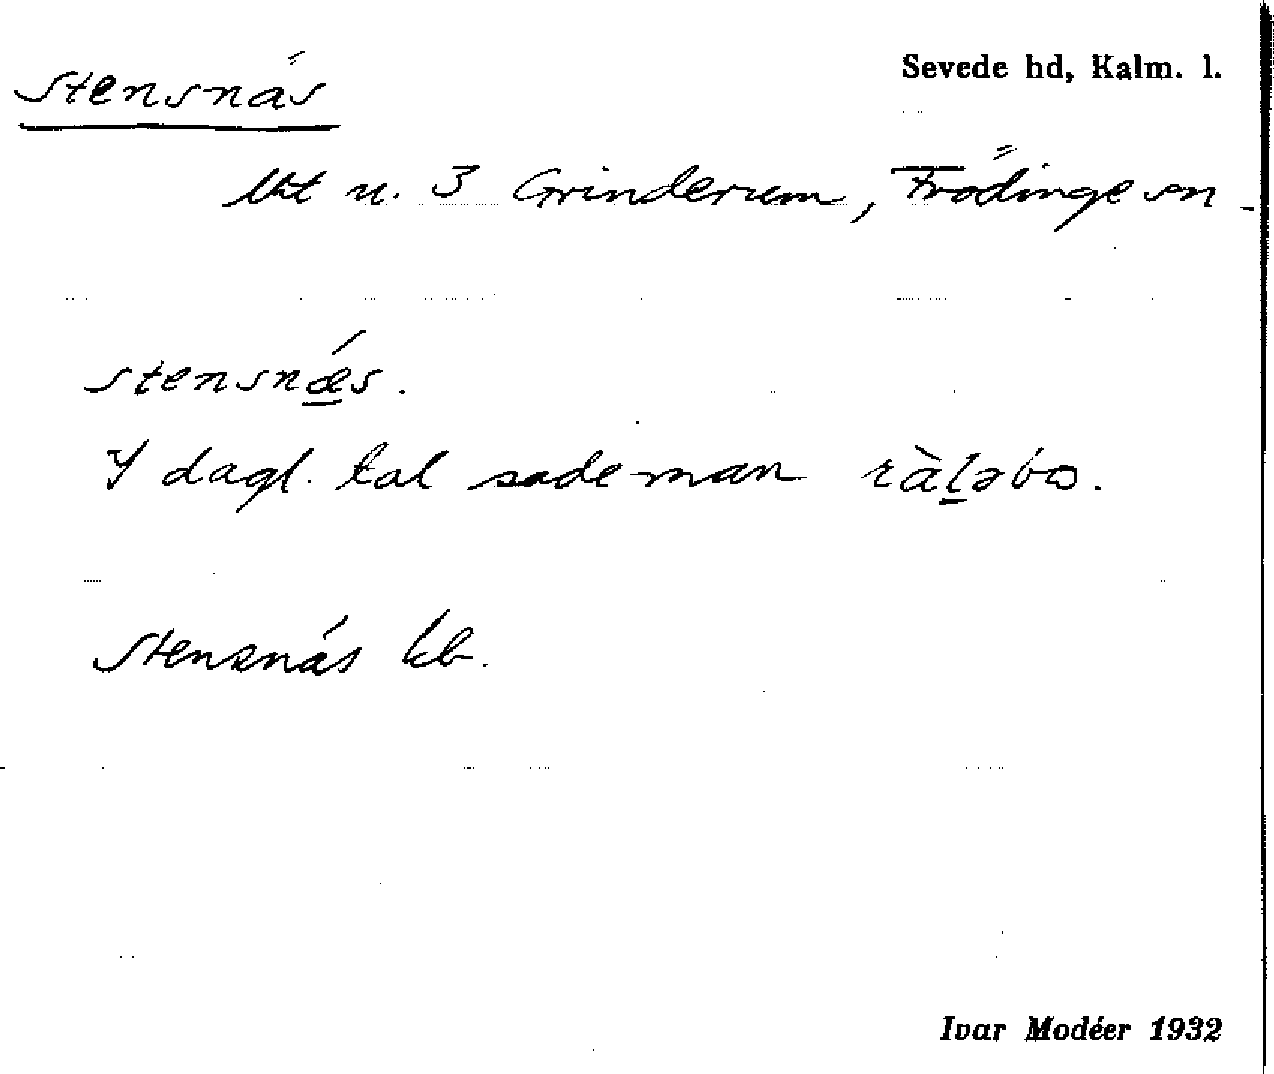 Stensnäs
Sevede hd, Kalm. l.
Utt u. 3 Grinderum, Frödinge sn
stensnǽ̲s.
I dagl. tal sade man ràl̲əbo.
Stensnäs kb.
Ivar Modéer 1932